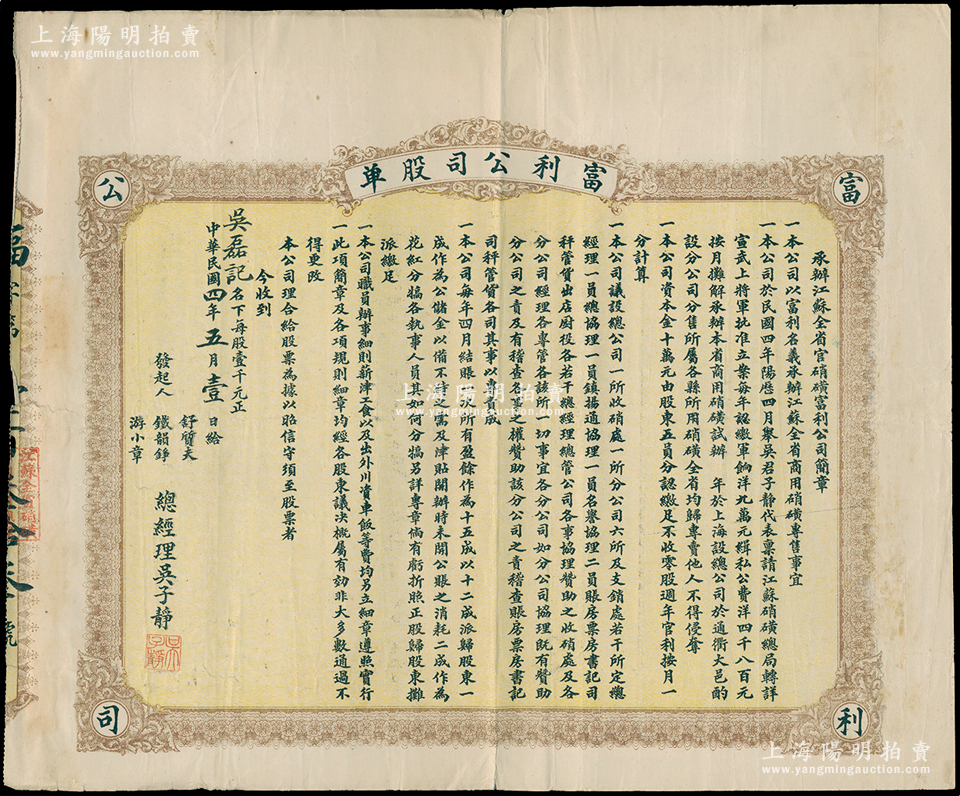 上海陽明拍賣
www.yangmingauction.com
富利公司股單
富
利
公
司
承辦江蘇全省官硝磺富利公司簡章
一本公司以富利名義承辦江蘇全省商用硝磺專售事宜
一本公司於民國四年陽歷四月舉吳君子靜代表稟請江蘇硝磺總局轉詳
宣武上將軍批准立案每年認繳軍餉洋九萬元緝私公費洋四千八百元
按月攤解承辦本省商用硝磺試辦 年於上海設總公司於通衢大邑酌
設分公司分售所屬各縣所用硝磺全省均歸專賣他人不得侵奪
一本公司資本金十萬元由股東五員分認繳足不收零股週年官利按月一
分計算
一本公司議設總公司一所收硝處一所分公司六所及支銷處若干所定總
經理一員總協理一員鎮揚通協理一員名譽協理二員賬房票房書記司
秤管貨出店厨役各若干總經理總管公司各事協理贊助之收硝處及各
分公司經理各專管各該所一切事宜各分公司如分公司協理既有贊助
分公司之責及有稽查各事之權贊助該分公司之責稽查賬房票房書記
司秤管貨各司其事以專責成
一本公司每年四月結賬一次所有盈餘作為十五成以十二成派歸股東一
成作為公儲金以備不時之需及津貼開辦時未開公賬之消耗二成作為
花紅分犒各執事人員其如何分犒另詳專章倘有虧折照正股歸股東攤
派繳足
一本公司職員辦事細則薪津工食以及出外川資車飯等費均另立細章遵照實行
一此項簡章及各項規則細章均經各股東議决概屬有効非大多數通過不
得更改
本公司理合給股票為據以昭信守須至股票者
今收到
吳磊記名下每股壹千元正
中華民國四年五月壹日給
發起人
舒質夫
鐵韻錚
游小章
總經理吳子靜
福字第
號
上海陽明拍賣
www.yangmingauction.com